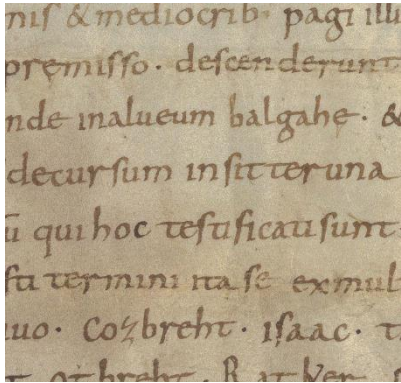 nis & mediocrib· pagi illu
premisso· descenderunt
nde inalueum balgahe· &
decursum insitteruna
qui hoc testificati sunt
sti termini ita se exmul
uuo· Cozbreht· isaac· t
otbreht· Ratker